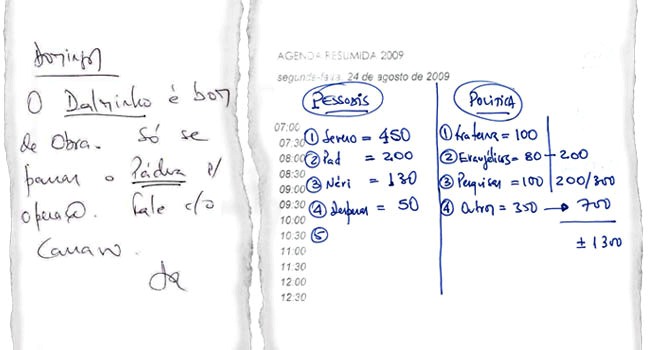 Domingos
O Dalmirinho é bom
de Obra. Só se
passar o Pádua p/
operação. Fale c/o
Canaro.
AGENDA RESUMIDA 2009
segunda-feira, 24 de agosto de 2009
PESSOAIS
POLÍTICA
07:00
07:30 ① = 450
08:00 ② Pad = 200
08:30 ③ Néri = 130
09:00
09:30 ④ despesas = 50
10:00
10:30 ⑤
11:00
11:30
12:00
12:30
① fraterna = 100
② Evangélicos = 80 – 200
③ Pesquisas = 100 200/300
④ Outros = 350 → 700
± 1300